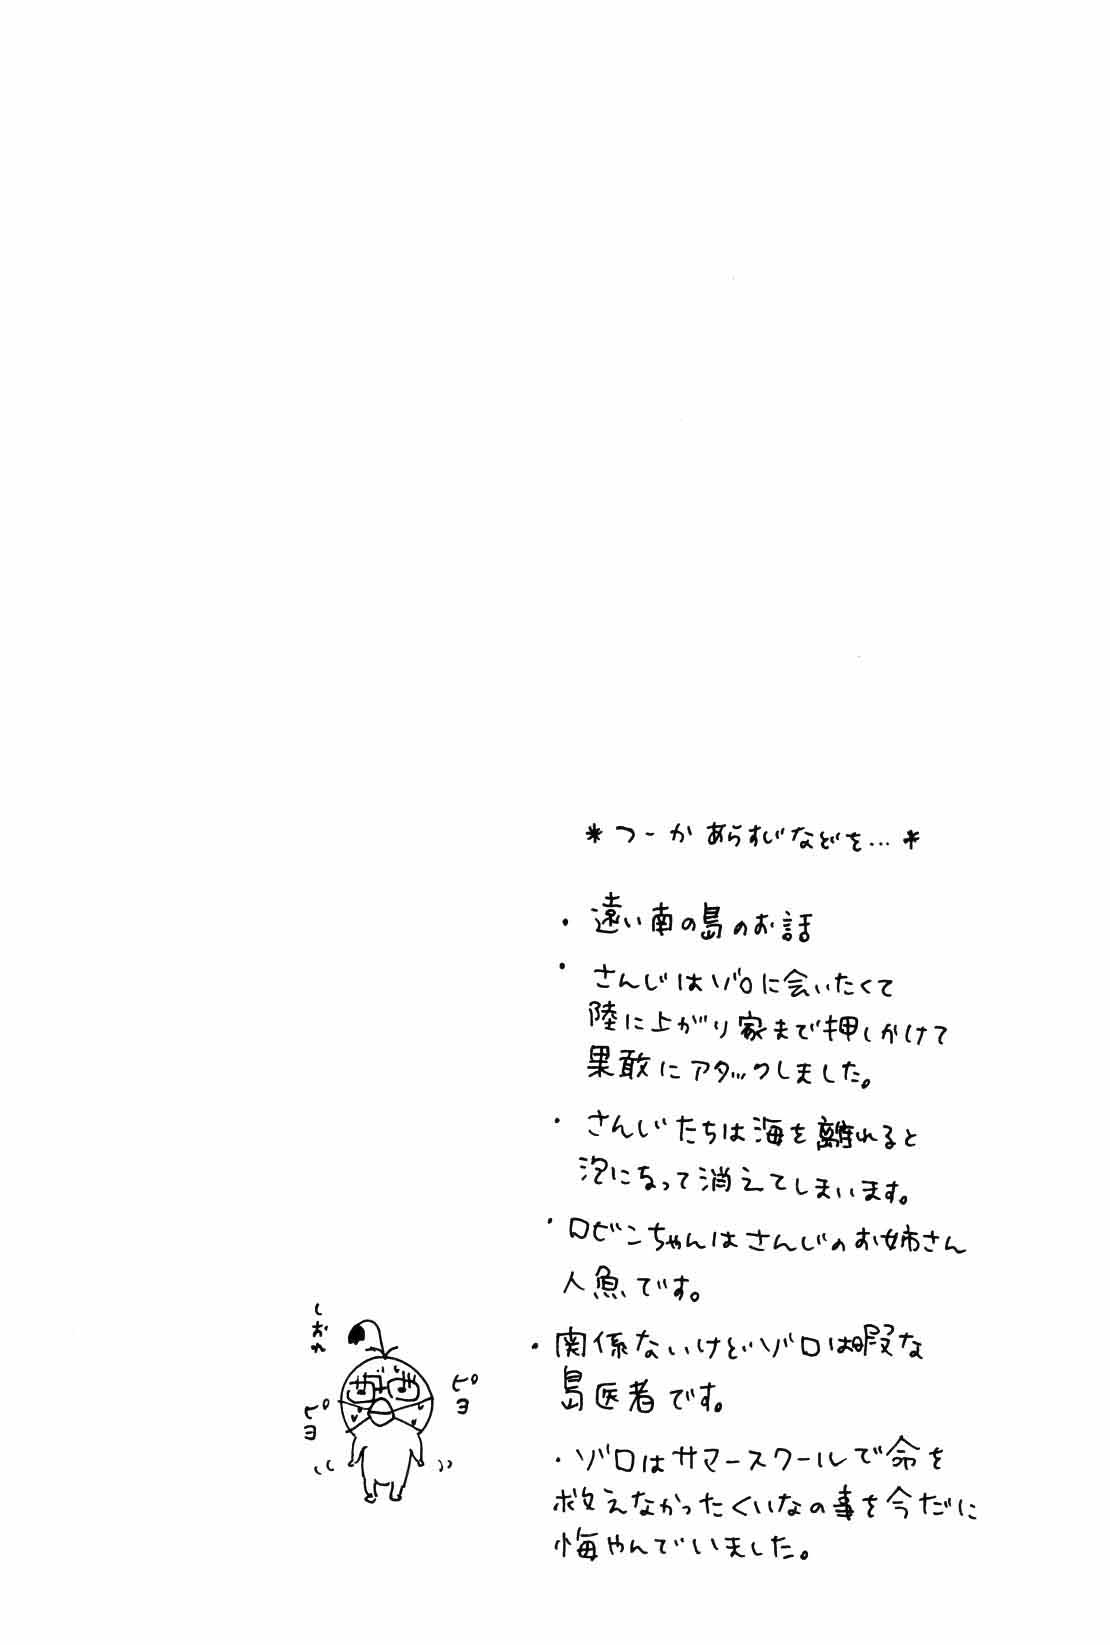 *つーかあらすじなどを…*
・遠い南の島のお話
・さんじはゾロに会いたくて
陸に上がり家まで押しかけて
果敢にアタックしました。
・さんじたちは海を離れると
泡になって消えてしまいます。
・ロビンちゃんはさんじのお姉さん
人魚です。
・関係ないけどゾロは暇な
島医者です。
・ゾロはサマースクールで命を
救えなかったくいなの事を今だに
悔やんでいました。
しおれ
ピヨ
ピヨ